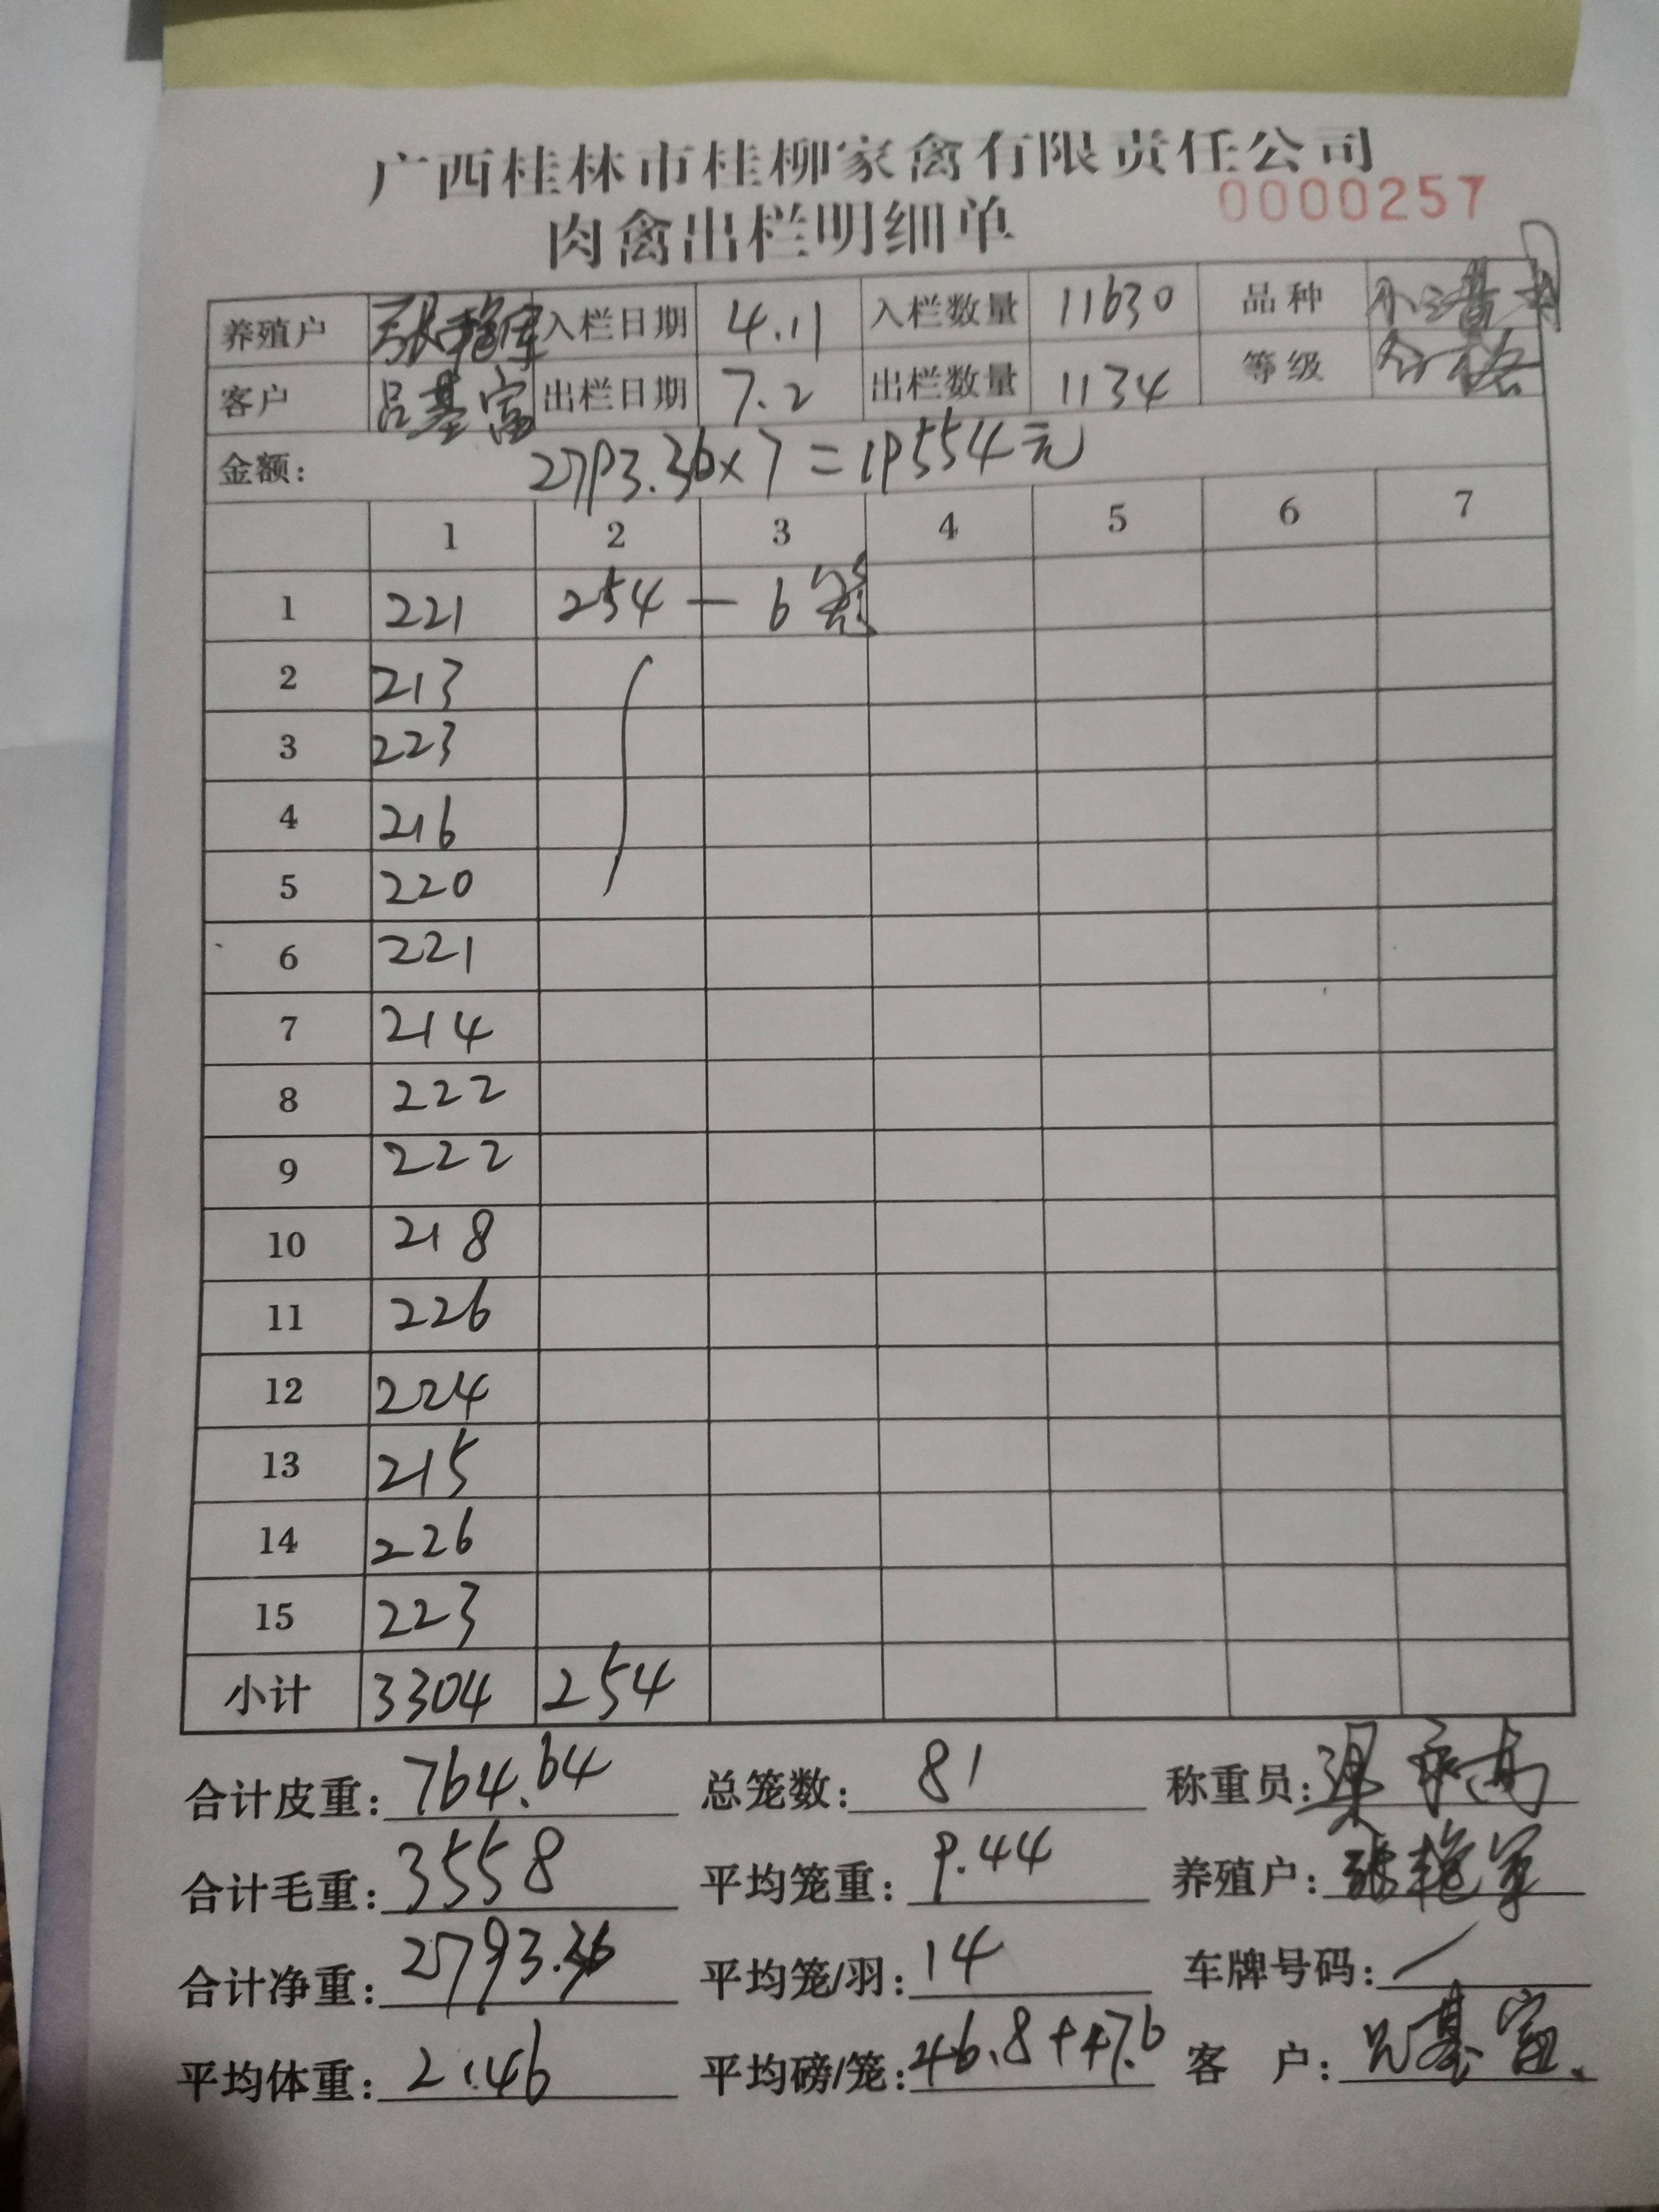 广西桂林市桂柳家禽有限责任公司
肉禽出栏明细单 0000257
养殖户 张艳军 入栏日期 4.11 入栏数量 11630 品种
客户 吕基富 出栏日期 7.2 出栏数量 1134 等级 合格
金额: 2793.36×7=19554元
1 2 3 4 5 6 7
1 221 254 — 6笼
2 213
3 223
4 216
5 220
6 221
7 214
8 222
9 222
10 218
11 226
12 224
13 215
14 226
15 223
小计 3304 254
合计皮重: 764.64 总笼数: 81 称重员:
合计毛重: 3558 平均笼重: 9.44 养殖户: 张艳军
合计净重: 2793.36 平均笼/羽: 14 车牌号码: /
平均体重: 2.46 平均磅/笼: 46.8+47.6 客 户: 吕基富